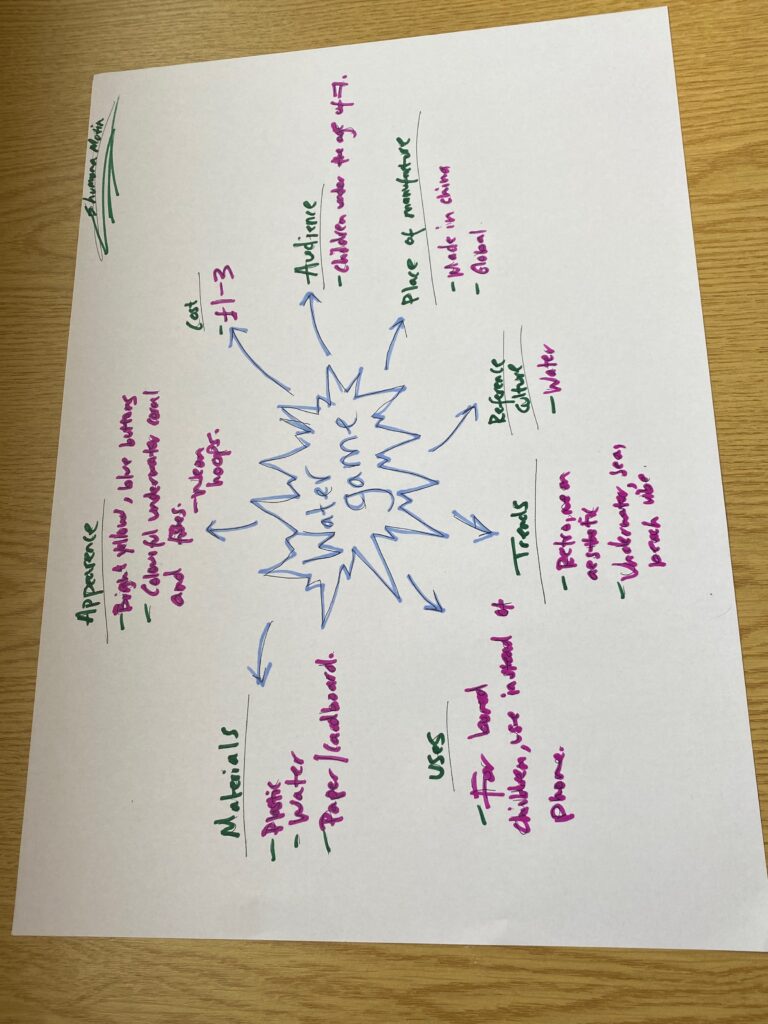 Shumena Motin
Water
game
Materials
- Plastic
- Water
- Paper/Cardboard.
Appearence
- Bright yellow, blue buttons
- Colourful underwater coral
and fishes.
- Neon
hoops.
Cost
- £1-3
Audience
- Children under the age of 7.
Place of manufature
- Made in china
- Global
Reference
culture
- Water
Trends
- Retro, neon
aesthetic
- Underwater, sea,
beach vibe.
Uses
- For bored
children, use instead of
phone.